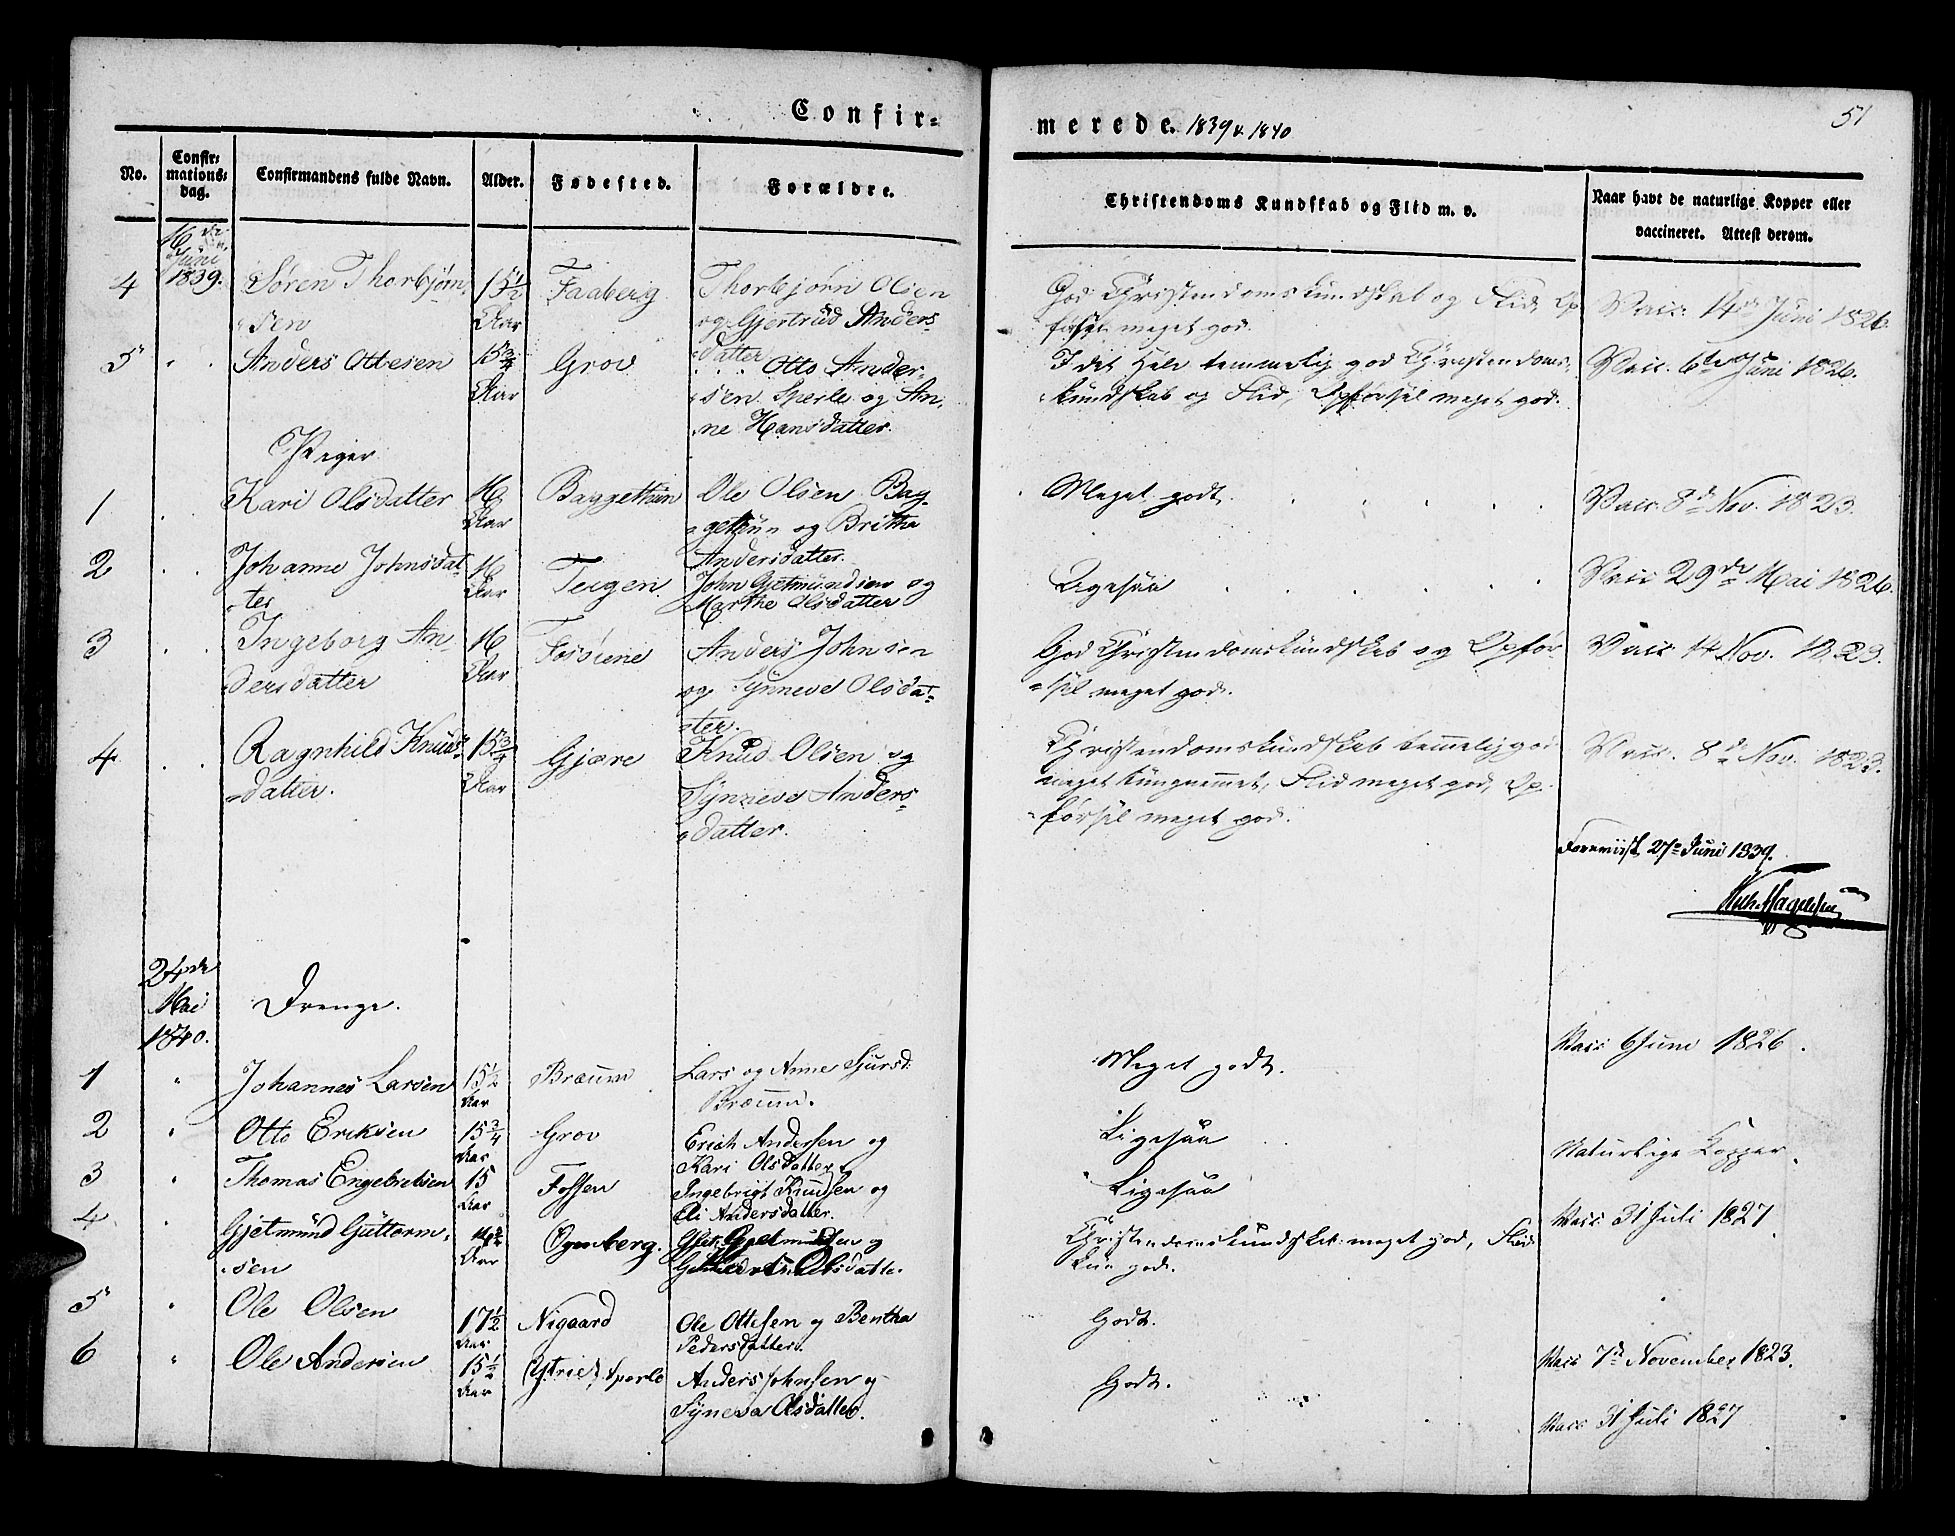 Confir-
merede. 1839 & 1840
51
No.
Confir-
mations-
dag.
Confirmandens fulde Navn.
Alder.
Fødested.
Forældre.
Christendoms Kundskab og Flid m. v.
Naar havt de naturlige Kopper eller
vaccineret. Attest derom.
16de
Juni
1839.
4 Søren Thorbjørn- 15½ Faaberg Thorbjørn Olsen God Christendomskundskab og Flid, Op- Vacc. 14de Juni 1826.
sen Aar og Gjertrud Anders- førsel meget god.
datter
5 Anders Ottesen 15¾ Grov Otto Ander- I det Hele temmelig god Christendoms- Vacc. 6te Juni 1826.
Aar sen Sperle og An- kundskab og Flid, Opførsel meget god.
ne Hansdatter.
Piger
1 Kari Olsdatter 16 Baggethun Ole Olsen Bag- Meget godt. Vacc. 8de Nov. 1823.
Aar gethun og Britha
Andersdatter.
2 Johanne Johnsdat- 16 Teigen John Gjetmundsen og Ligesaa Vacc 29de Mai 1826.
ter Aar Marthe Olsdatter
3 Ingeborg An- 16 Fosøiene Anders Johnsen God Christendomskundskab og Opfør- Vacc 14 Nov. 1823.
dersdatter Aar og Synneve Olsdat- sel meget god.
ter.
4 Ragnhild Knuds- 15¾ Gjære Knud Olsen og Christendomskundskab temmelig god Vacc. 8de Nov. 1823.
datter. Aar Synneve Anders- meget tungnemmet, Flid meget god, Op-
datter. førsel meget god.
Foreviist, 27de Juni 1839.
24de
Mai
1840.
Drenge.
1 Johannes Larsen 15½ Bræum Lars og Anne Sjursd: Meget godt. Vacc 6 Juni 1826.
Aar Bræum.
2 Otto Eriksen 15¾ Grov Erich Andersen og Ligesaa Naturlige Kopper.
Aar Kari Olsdatter
3 Thomas Engebretsen 15 Fossen Ingebrigt Knudsen og Ligesaa Vacc 31 Juli 1827
Aar Eli Andersdatter.
4 Gjetmund Guttorm- Christendomskundskab meget god, Flid
sen Aar Olsdatter god.
5 Ole Olsen 17½ Nigaard Ole Ottesen og Bentha Godt. Vacc 7de November 1823.
Aar Pedersdatter.
6 Ole Andersen 15½ Sperle Anders Johnsen og Godt. Vacc 31 Juli 1827
Aar Syneva Olsdatter.